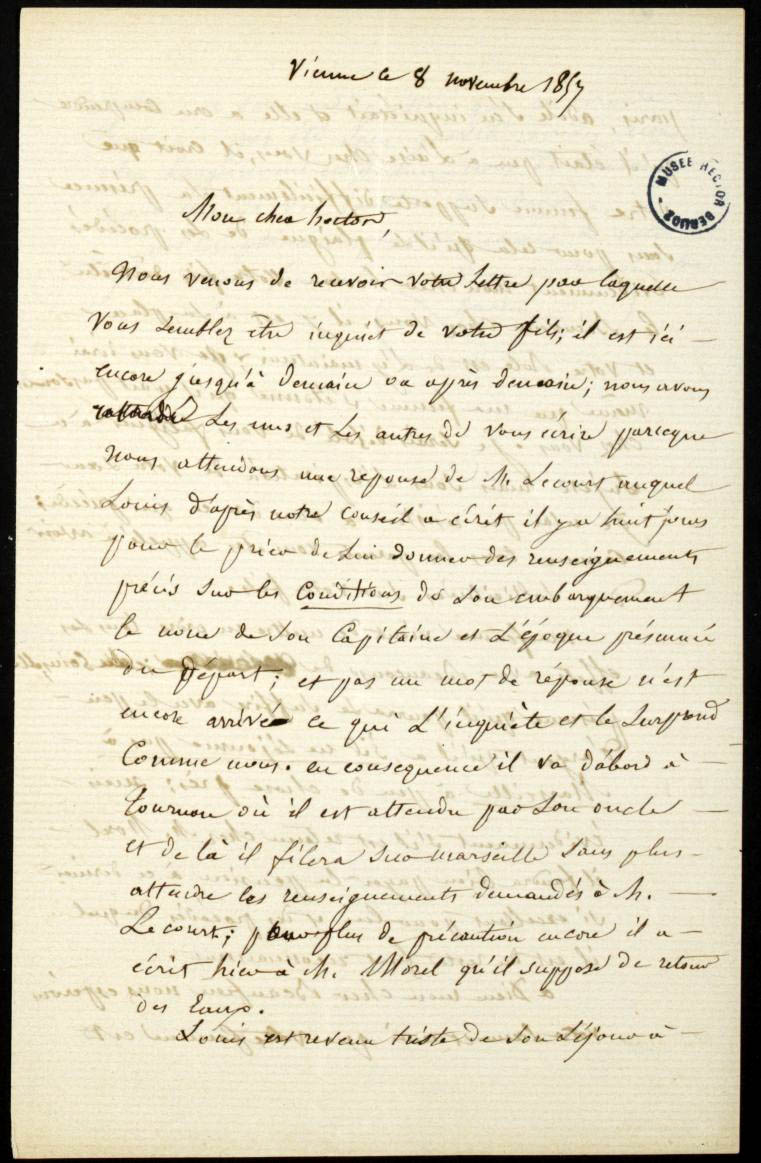 Vienne le 8 novembre 1857
MUSEE HECTOR BERLIOZ
Mon cher hector,
Nous venons de recevoir votre Lettre par laquelle
Vous semblez être inquiet de votre fils; il est ici
encore jusqu'à demain ou après demain; nous avons
Les uns et Les autres de vous écrire parceque
Nous attendons une reponse de M. Lecourt auquel
Louis d'après notre conseil a écrit il y a huit jours
pour le prier de Lui donner des renseignements
précis sur les Conditions de Son embarquement
le nom de Son Capitaine et L'époque présumée
du Départ; et pas un mot de réponse n'est
encore arrivé ce qui L'inquiète et le Surprend
Comme nous. en consequence il va d'abord à
tournon où il est attendu par Son oncle
et de là il filera sur marseille Sans plus
attendre les renseignements demandés à M.
Lecourt; pour plus de précaution encore il a
écrit hier à M. Morel qu'il suppose de retour
des Eaux.
Louis est revenu triste de Son Séjour à